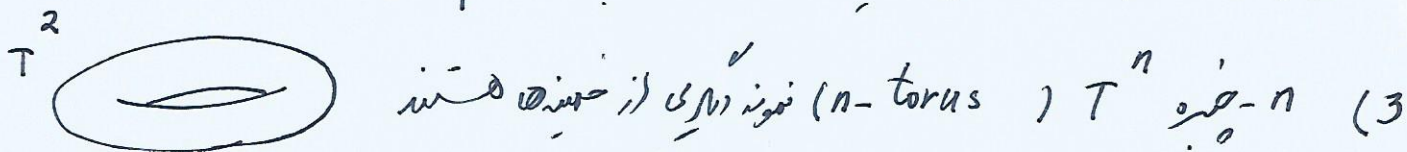 3) n-چنبره Tⁿ (n-torus) نمونه دیگری از خمینه‌ها هستند
T²